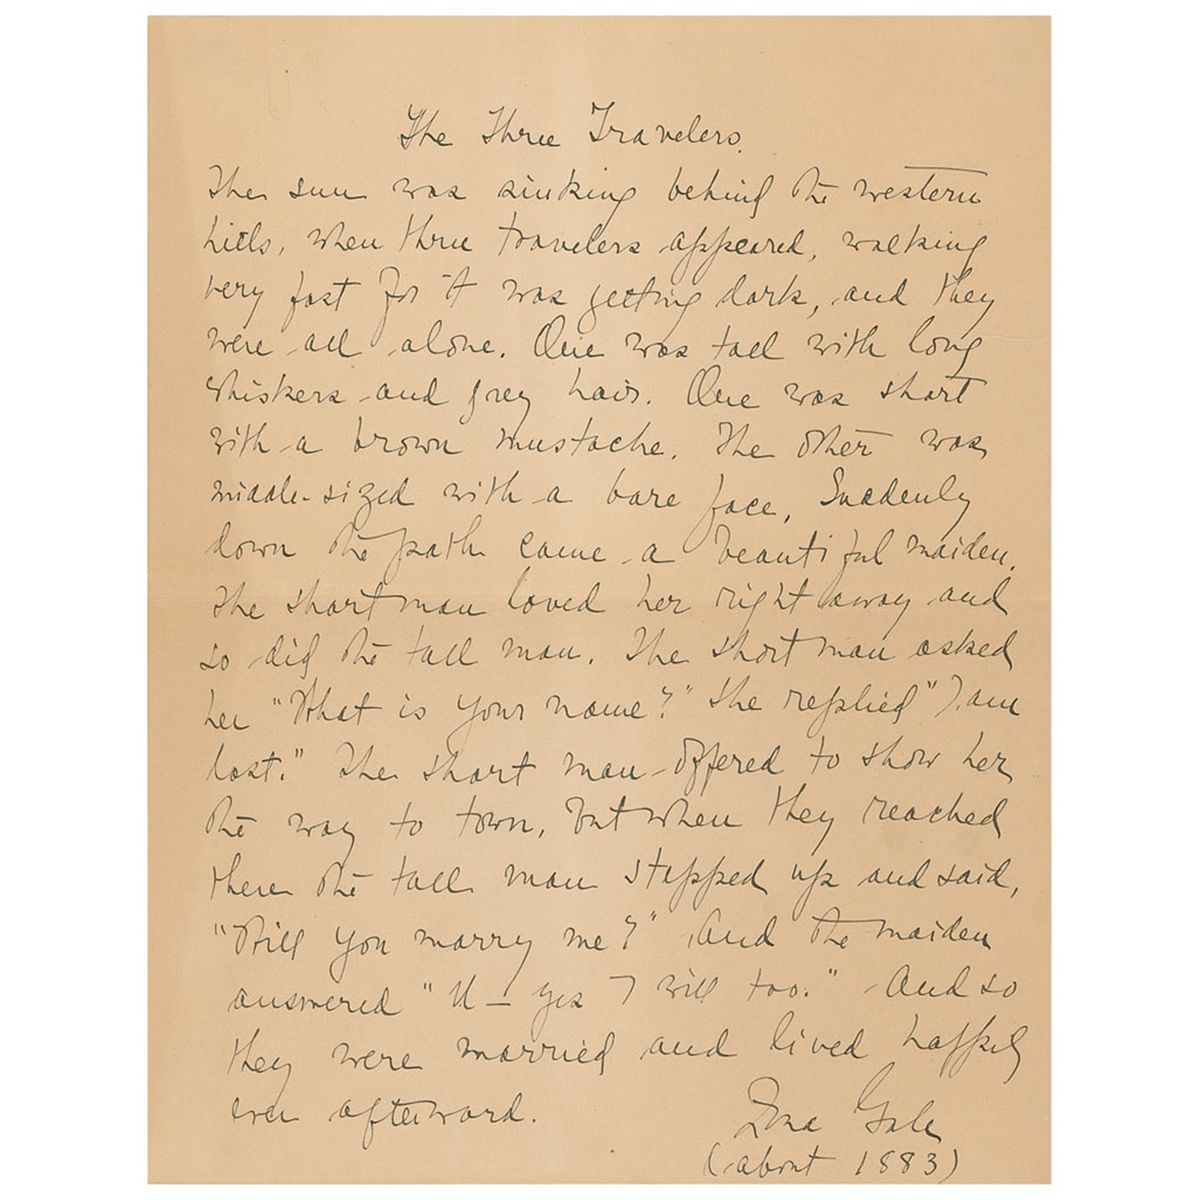 The Three Travelers.
The sun was sinking behind the western
hills, when three travelers appeared, walking
very fast for it was getting dark, and they
were all alone. One was tall with long
whiskers and grey hair. One was short
with a brown mustache. The other was
middle-sized with a bare face. Suddenly
down the path came a beautiful maiden.
The short man loved her right away and
so did the tall man. The short man asked
her "What is your name?" She replied "I am
lost." The short man offered to show her
the way to town, but when they reached
there the tall man stepped up and said,
"Will you marry me?" And the maiden
answered "U — yes I will too." And so
they were married and lived happily
ever afterward.
Zona Gale
(about 1883)